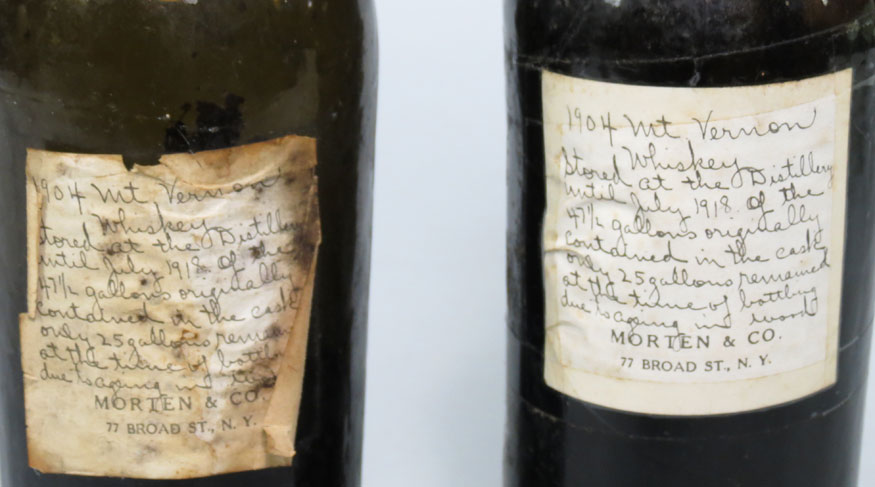 1904 Mt Vernon
Whiskey
stored at the Distillery
until July 1918. of the
47½ gallons originally
contained in the cask
only 25 gallons remain
at the time of bottling
due to ageing in wood
MORTEN & CO.
77 BROAD ST., N. Y.
1904 Mt Vernon
Whiskey
stored at the Distillery
until July 1918. of the
47½ gallons originally
contained in the cask
only 25 gallons remained
at the time of bottling
due to ageing in wood
MORTEN & CO.
77 BROAD ST., N. Y.